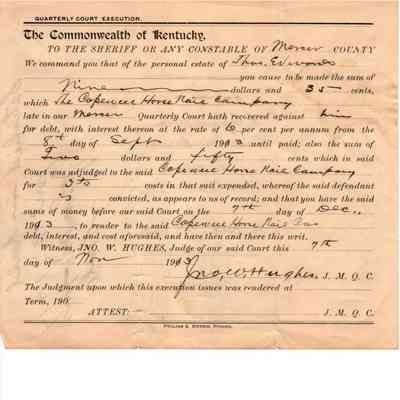 QUARTERLY COURT EXECUTION.
The Commonwealth of Kentucky,
TO THE SHERIFF OR ANY CONSTABLE OF Mercer COUNTY
We command you that of the personal estate of Thos. Edwards
you cause to be made the sum of
Nine dollars and 35 cents,
which The Capewell Horse Nail Company
late in our Mercer Quarterly Court hath recovered against him
for debt, with interest thereon at the rate of 6 per cent per annum from the
8th day of Sept 1903 until paid; also the sum of
Two dollars and fifty cents which in said
Court was adjudged to the said Capewell Horse Nail Company
for costs in that suit expended, whereof the said defendant
is convicted, as appears to us of record; and that you have the said
sums of money before our said Court on the 7th day of Dec.,
1903, to render to the said Capewell Horse Nail Co
debt, interest, and cost aforesaid, and have then and there this writ.
Witness, JNO. W. HUGHES, Judge of our said Court this 7th
day of Nov 1903 Jno. W. Hughes. J. M. Q. C.
The Judgment upon which this execution issues was rendered at
Term, 190
ATTEST: J. M. Q. C.